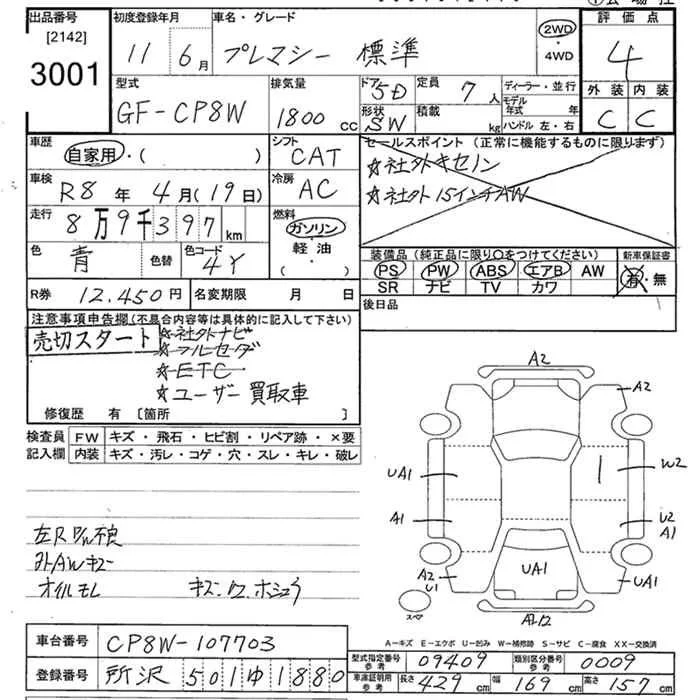 出品番号 初度登録年月 車名・グレード 評価点
[2142] 3001 11年 6月 プレマシー 標準 2WD・4WD 4
型式 排気量 ドア 5D 定員 7人 ディーラー・並行 外装 内装
GF-CP8W 1800cc 形状 SW 積載 kg モデル年式 年 ハンドル 左・右 C C
車歴 自家用・( ) シフト CAT セールスポイント (正常に機能するものに限ります)
☆社外キセノン
車検 R8年 4月(19日) 冷房 AC ☆社外15インチAW
走行 8万9千397km 燃料 ガソリン 軽油 ( )
色 青 色替 色コード 4Y 装備品 (純正品に限り○をつけてください) 新車保証書
PS PW ABS エアB AW 有・無
SR ナビ TV カワ
R券 12,450円 名変期限 月 日 後日品
注意事項申告欄(不具合内容等は具体的に記入して下さい)
売切スタート ☆社外ナビ
☆フルセグ
☆ETC
☆ユーザー買取車
修復歴 有 [箇所 ]
検査員 FW キズ・飛石・ヒビ割・リペア跡・×要
記入欄 内装 キズ・汚レ・コゲ・穴・スレ・キレ・破レ
A2
A2
UA1 W2
A1 U2
A1
UA1
A2
U1 UA1
スペア
左R P/W不良
オイルモレ キズ・ワレ・ホシュウ
A=キズ E=エクボ U=凹み W=補修跡 S=サビ C=腐食 XX=交換済
車台番号 CP8W-107703
型式指定番号参考 09409 類別区分番号参考 0009
登録番号 所沢 501ゆ1880 車庫証明用参考 長さ 429cm 幅 169cm 高さ 157cm